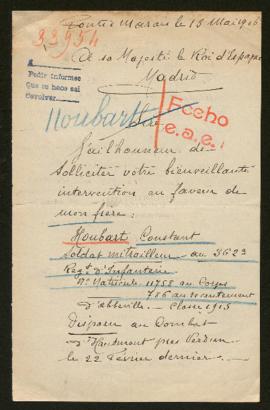 Pontru Marais le 15 Mai 1916
33954
A sa Majesté le Roi d'Espagne
Madrid
Pedir informes
Que se hace asi
Devolver
Houbart
Fecho
e.a.e.
Sire
J'ai l'honneur de
Solliciter votre bienveillante
intervention au faveur de
mon frère :
Houbart Constant
Soldat mitrailleur au 362e
Regt d'Infanterie
No Matricule 11758 au Corps
786 au recrutement
d'Abbeville - Classe 1913
Disparu au Combat
d'Haudumont près Verdun
le 22 Février dernier.